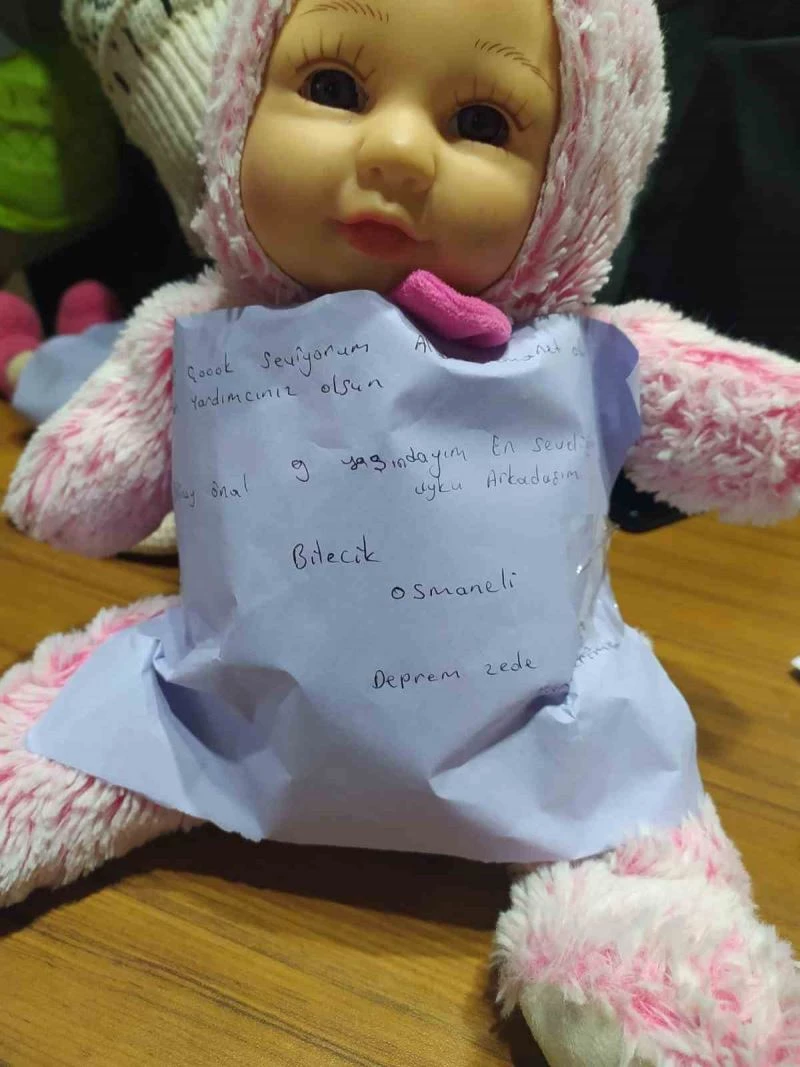 Çoook Seviyorum
Yardımcınız olsun
9 yaşındayım En
önal uyku Arkadaşım
Bilecik
osmaneli
Deprem zede